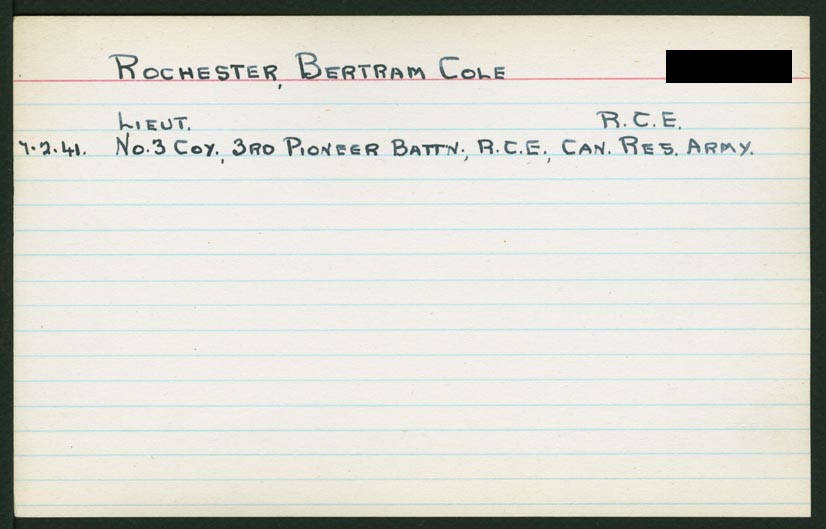 ROCHESTER, BERTRAM COLE
LIEUT. R.C.E.
7.2.41. NO.3 COY., 3RD PIONEER BATTN., R.C.E., CAN. RES. ARMY.